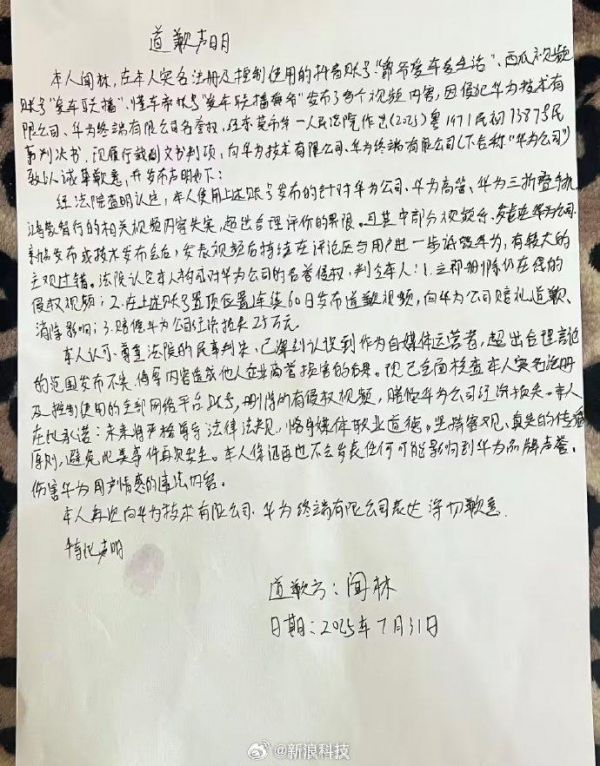 道歉声明
本人闻林，在本人实名注册及控制使用的抖音账号"爵爷爱车爱生活"、西瓜视频
账号"爱车联播"、懂车帝账号"爱车联播爵爷"发布了多个视频内容，因侵犯华为技术有
限公司、华为终端有限公司名誉权，经东莞市第一人民法院作出（2025）粤1971民初13875号民
事判决书，现履行裁判文书判项，向华为技术有限公司、华为终端有限公司（下合称"华为公司"）
致以诚挚歉意，并发布声明如下：
经法院查明认定，本人使用上述账号发布的针对华为公司、华为高管、华为三折叠手机
鸿蒙智行的相关视频内容失实，超出合理评价的界限。且其中部分视频系
新品发布或技术发布会后，发表视频后持续在评论区与用户进一步诋毁华为，有较大的
主观过错。法院认定本人构成对华为公司的名誉侵权，判令本人：1.立即删除仍在线的
侵权视频；2.在上述账号置顶位置连续60日发布道歉视频，向华为公司赔礼道歉、
消除影响；3.赔偿华为公司经济损失25万元。
本人认可、尊重法院的民事判决，已深刻认识到作为自媒体运营者，超出合理言论
的范围发布不实、侮辱内容造成他人企业商誉损害的后果。现已全面核查本人实名注册
及控制使用的全部网络平台账号，删除所有侵权视频，赔偿华为公司经济损失。本人
在此承诺：未来将严格遵守法律法规，恪守媒体职业道德。坚持客观、真实的传播
原则，避免此类事件再次发生。本人保证再也不会发表任何可能影响到华为品牌声誉、
伤害华为用户情感的违法内容。
本人再次向华为技术有限公司、华为终端有限公司表达深切歉意。
特此声明
道歉方：闻林
日期：2025年7月31日
@新浪科技